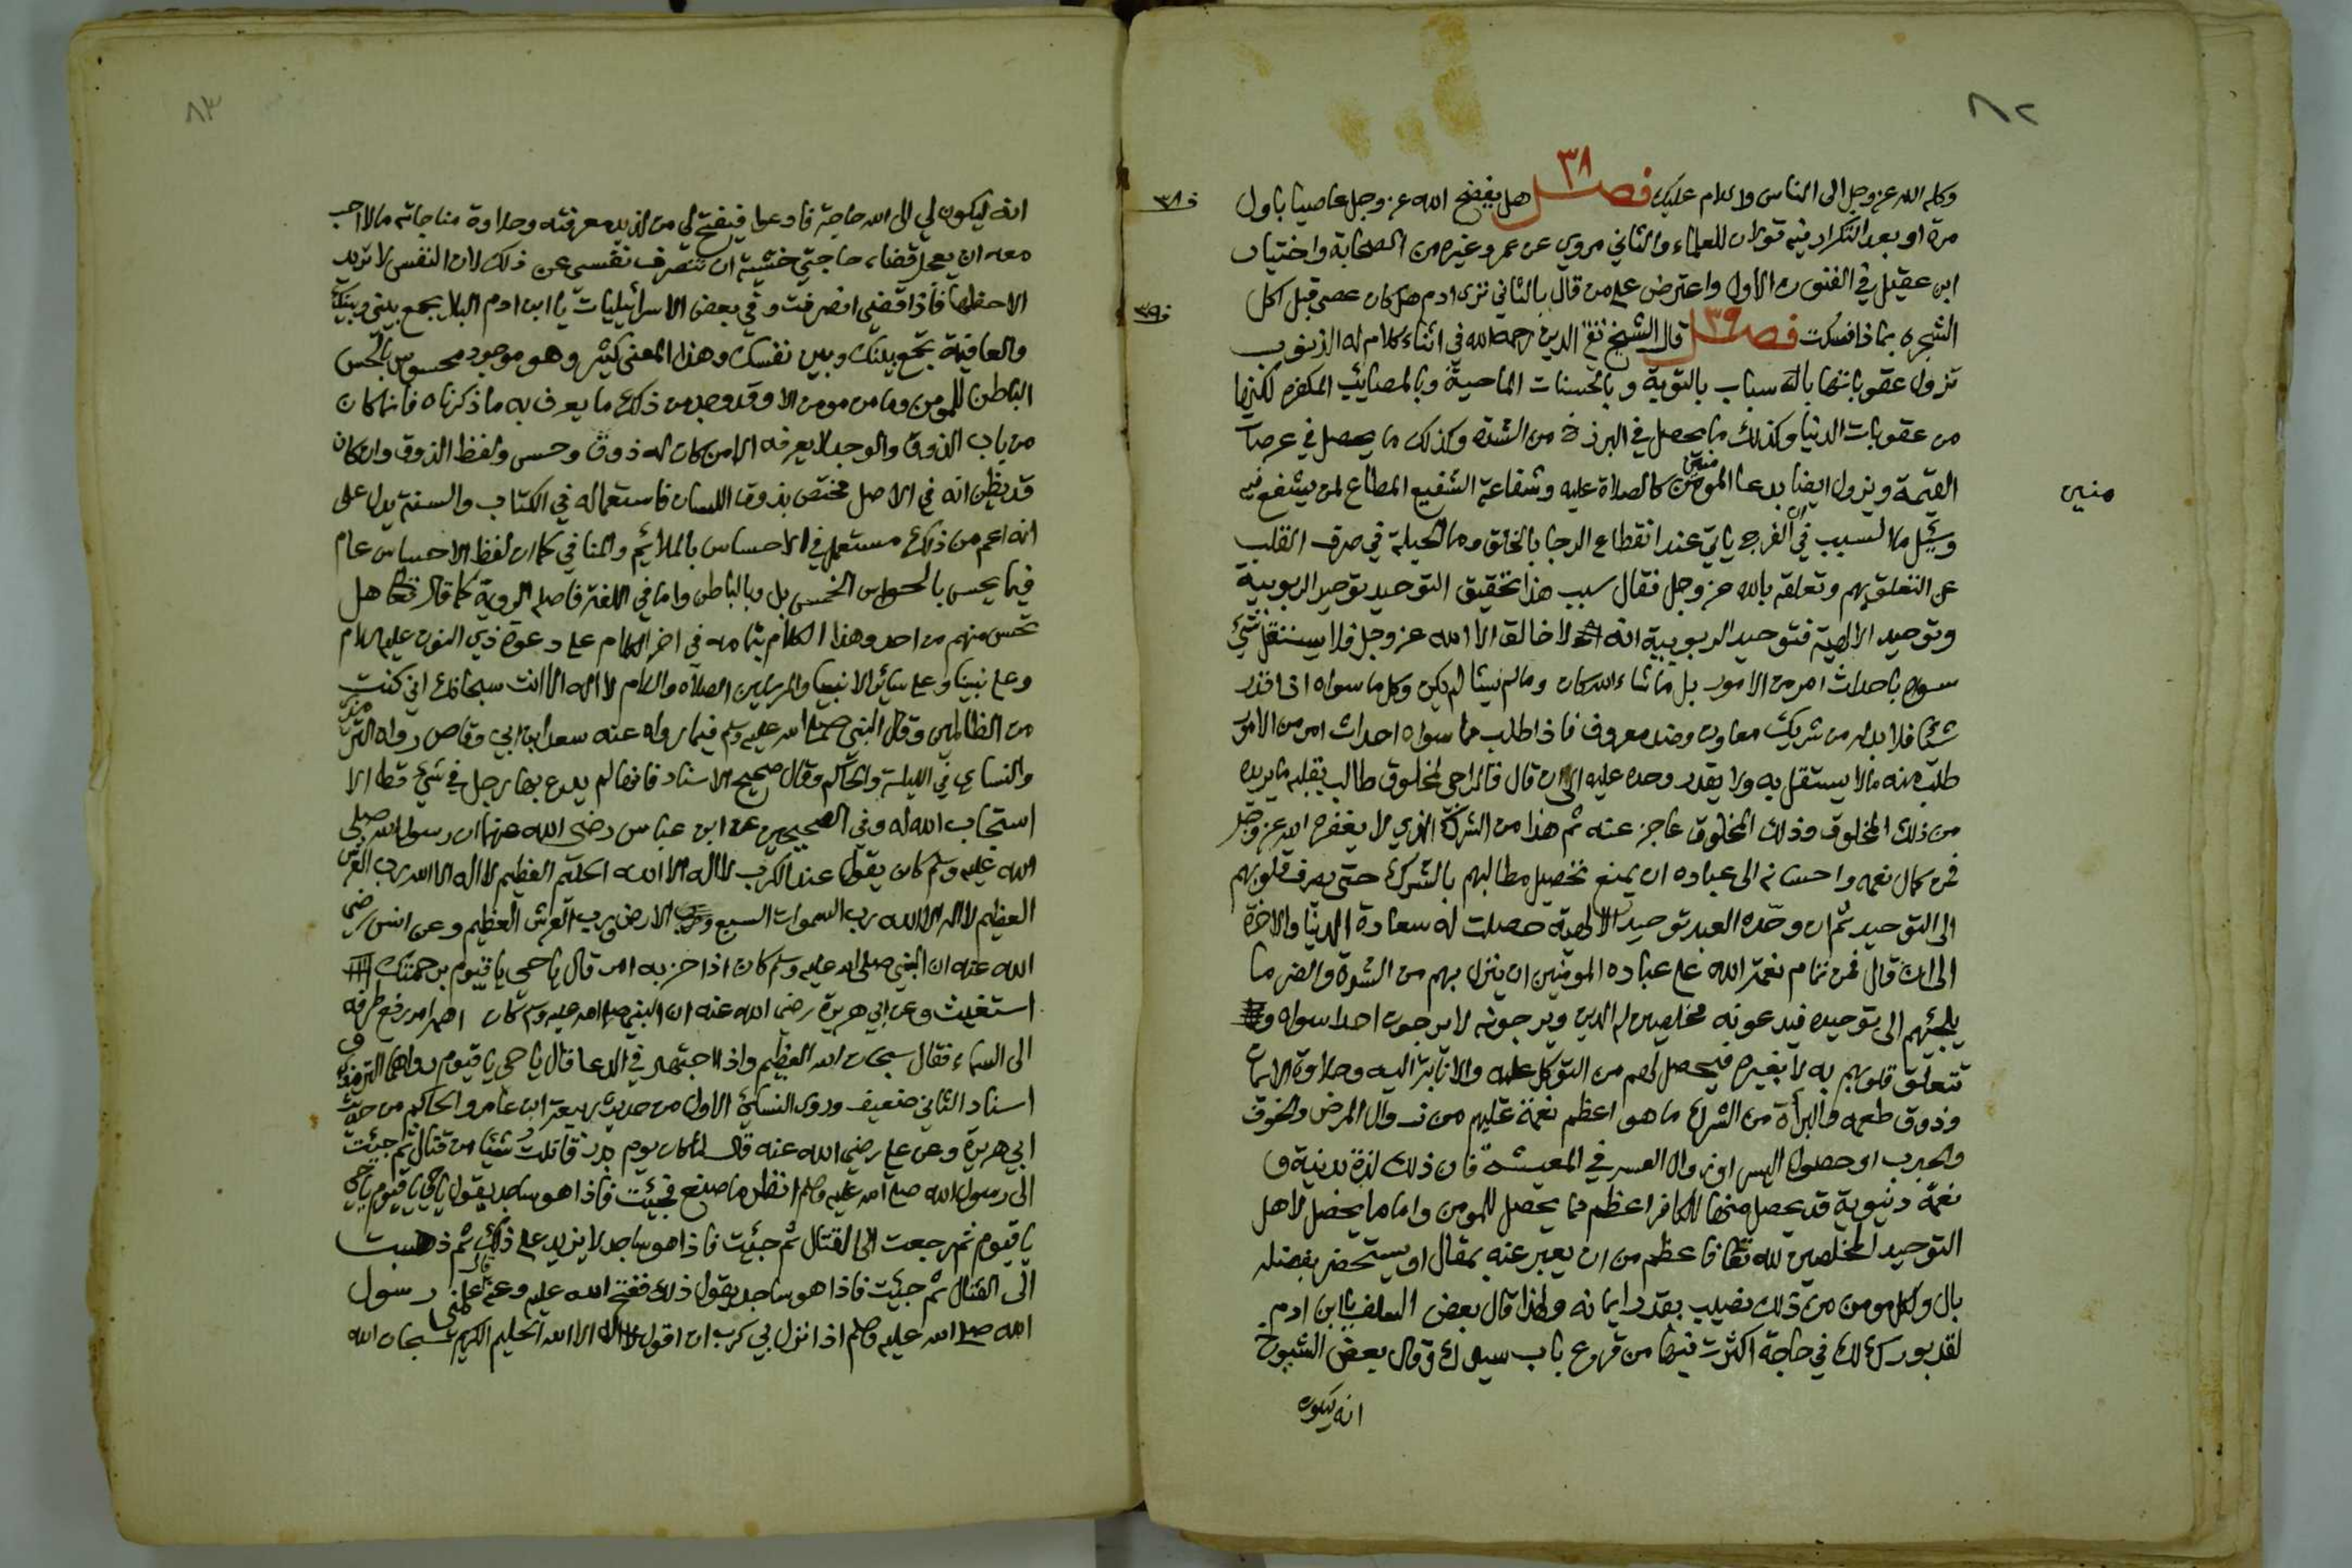 ٨٢
٣٨
وكله الله عز وجل الى الناس والسلام عليك فصل هل يفضح الله عز وجل عاصيا باول
ف ٣٨
مرة او بعد التكرار فيه قولان للعلماء والثاني مروي عن عمر وغيره من الصحابة واختيار
ابن عقيل في الفنون الاول واعترض على من قال بالثاني ترى ادم هل كان عصى قبل اكل
ف ٣٩
٣٩
الشجرة بماذا فسكت فصل قال الشيخ تقي الدين رحمه الله في اثناء كلام له الذنوب
تزول عقوباتها بالاسباب بالتوبة وبالحسنات الماحية وبالمصائب المكفرة لكنها
من عقوبات الدنيا وكذلك ما يحصل في البرزخ من الشدة وكذلك ما يحصل في عرصات
القيمة وتزول ايضا بدعا المومنين كالصلاة عليه وشفاعة الشفيع المطاع لمن يشفع فيه
منين
وسئل ما السبب في ان الفرج ياتي عند انقطاع الرجا بالخلق وما الحيلة في صرف القلب
عن التعلق بهم وتعلقه بالله عز وجل فقال سبب هذا تحقيق التوحيد توحيد الربوبية
وتوحيد الالهية فتوحيد الربوبية انه لا خالق الا الله عز وجل فلا يستقل شئ
سواه باحداث امر من الامور بل ما شاء الله كان وما لم يشا لم يكن وكل ما سواه اذا قدر
شيئا فلا بد له من شريك معاون وضد معروف فاذا طلب مما سواه احداث امر من الامور
طلب منه ما لا يستقل به ولا يقدر وحده عليه الى ان قال فالراجي لمخلوق طالب بقلبه ما يريده
من ذلك المخلوق وذلك المخلوق عاجز عنه ثم هذا من الشرك الذي لا يغفره الله عز وجل
فمن كمال نعمه واحسانه الى عباده ان يمنع تحصيل مطالبهم بالشرك حتى يصرف قلوبهم
الى التوحيد ثم ان وحّده العبد توحيد الالهية حصلت له سعادة الدنيا والاخرة
الى ان قال فمن تمام نعمة الله على عباده المومنين ان ينزل بهم من الشدة والضر ما
يلجئهم الى توحيده فيدعونه مخلصين له الدين ويرجونه لا يرجون احدا سواه و
تتعلق قلوبهم به لا بغيره فيحصل لهم من التوكل عليه والانابة اليه وحلاوة الايمان
وذوق طعمه والبراة من الشرك ما هو اعظم نعمة عليهم من زوال المرض والخوف
والجدب او حصول اليسر او زوال العسر في المعيشة فان ذلك لذة بدنية و
نعمة دنيوية قد يحصل منها للكافر اعظم مما يحصل للمومن واما ما يحصل لاهل
التوحيد المخلصين لله تعالى فاعظم من ان يعبر عنه بمقال او يستحضر بفضله
بال ولكل مومن من ذلك نصيب بقدر ايمانه ولهذا قال بعض السلف يا ابن ادم
لقد بورك لك في حاجة اكثرت فيها من قروع باب سيدك وقال بعض الشيوخ
انه ليكون
٨٣
انه ليكون لي الى الله حاجة فادعوا فيفتح لي من لذيذ معرفته وحلاوة مناجاته ما لا احب
معه ان يعجل قضاء حاجتي خشية ان تنصرف نفسي عن ذلك لان النفس لا تريد
الا حظها فاذا قضي انصرفت وفي بعض الاسرائيليات يا ابن ادم البلا يجمع بيني وبينك
والعافية تجمع بينك وبين نفسك وهذا المعنى كثير وهو موجود محسوس بالحس
الباطن للمومن وما من مومن الا وقد وجد من ذلك ما يعرف به ما ذكرناه فانما كان
من باب الذوق والوجد لا يعرفه الا من كان له ذوق وحس ولفظ الذوق وان كان
قد يظن انه في الاصل مختص بذوق اللسان فاستعماله في الكتاب والسنة يدل على
انه اعم من ذلك مستعمل في الاحساس بالملائم والمنافي كما ان لفظ الاحساس عام
فيما يحس بالحواس الخمس بل وبالباطن واما في اللغة فاصله الروية كما قال تعالى هل
تحس منهم من احد وهذا الكلام بتمامه في اخر الكلام على دعوة ذي النون عليه السلام
وعلى نبينا وعلى سائر الانبيا والمرسلين الصلاة والسلام لا اله الا انت سبحانك اني كنت
من الظالمين وقال النبي صلى الله عليه وسلم فيما رواه عنه سعد ابن ابي وقاص رواه الترمذي
والنساي في الليلة والحاكم وقال صحيح الاسناد فانها لم يدع بها رجل في شيئ قط الا
استجاب الله له وفي الصحيحين عن ابن عباس رضي الله عنهما ان رسول الله صلى
الله عليه وسلم كان يقول عند الكرب لا اله الا الله الحليم العظيم لا اله الا الله رب العرش
العظيم لا اله الا الله رب السموات السبع ورب الارض ورب العرش العظيم وعن انس رضي
الله عنه ان النبي صلى الله عليه وسلم كان اذا حزبه امر قال يا حي يا قيوم برحمتك
استغيث وعن ابي هريرة رضي الله عنه ان النبي صلى الله عليه وسلم كان اهمه امر رفع طرفه
الى السماء فقال سبحان الله العظيم واذا اجتهد في الدعا قال يا حي يا قيوم رواهما الترمذي و
اسناد الثاني ضعيف وروى النسائي الاول من حديث ربيعة ابن عامر والحاكم من حديث
ابي هريرة وعن علي رضي الله عنه قال لما كان يوم بدر قاتلت شيئا من قتال ثم جيئت
الى رسول الله صلى الله عليه وسلم انظر ما صنع فجيئت فاذا هو ساجد يقول يا حي يا قيوم يا حي
يا قيوم ثم رجعت الى القتال ثم جيئت فاذا هو ساجد لا يزيد على ذلك ثم ذهبت
الى القتال ثم جيئت فاذا هو ساجد يقول ذلك ففتح الله عليه وعنه قال علمني رسول
الله صلى الله عليه وسلم اذا نزل بي كرب ان اقول لا اله الا الله الحليم الكريم سبحان الله